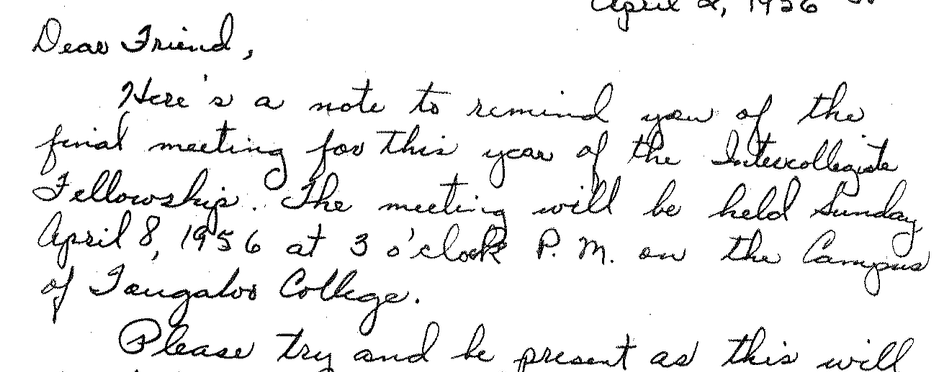 April 2, 1956
Dear Friend,
Here's a note to remind you of the
final meeting for this year of the Intercollegiate
Fellowship. The meeting will be held Sunday
April 8, 1956 at 3 o'clock P. M. on the Campus
of Tougaloo College.
Please try and be present as this will